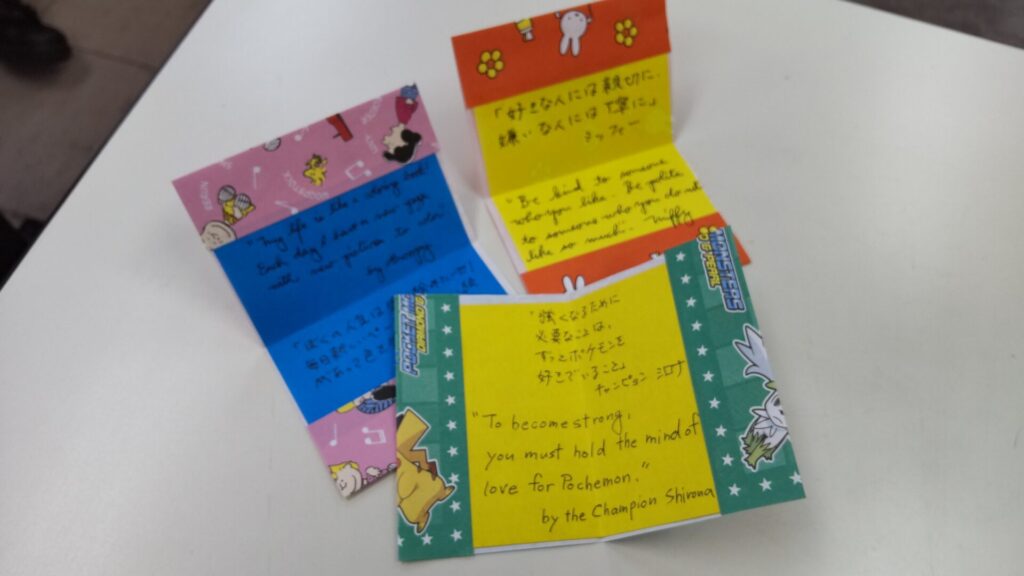 「好きな人には親切に、
嫌いな人には丁寧に」
ミッフィー
"Be kind to someone
who you like. Be polite
to someone who you do not
like so much." Miffy
"My life is like a coloring book!
Each day I have a new page
with new pictures to color!"
by Snoopy
「ぼくの人生は
毎日新しいペー
POCKET MO
MONSTERS
「強くなるために
必要なことは、
ずっとポケモンを
好きでいること」
チャンピョン シロナ
"To become strong,
you must hold the mind of
love for Pochemon."
by the Champion Shirona